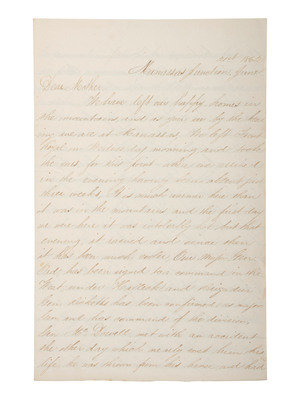 21st 1862
Manassas Junction, June
Dear Mother
We have left our happy homes in
the mountains and as you see by the
we are at Manassas. We left Front
Royal on day morning and took
the cars for this point where we arrived
in the evening having been absent just
three weeks. It is much warmer here than
it was in the mountains and the first day
we were here it was intolerably hot but that
evening it rained and since then
it has been much cooler. Our Major Gen-
has been signed to command in the
West under and Brigadier
Gen. Ricketts has been confirmed as major
Gen and has command of the division,
Gen Mc Dowell met with an accident
the other day which nearly cost him his
life, he was thrown from his horse and had